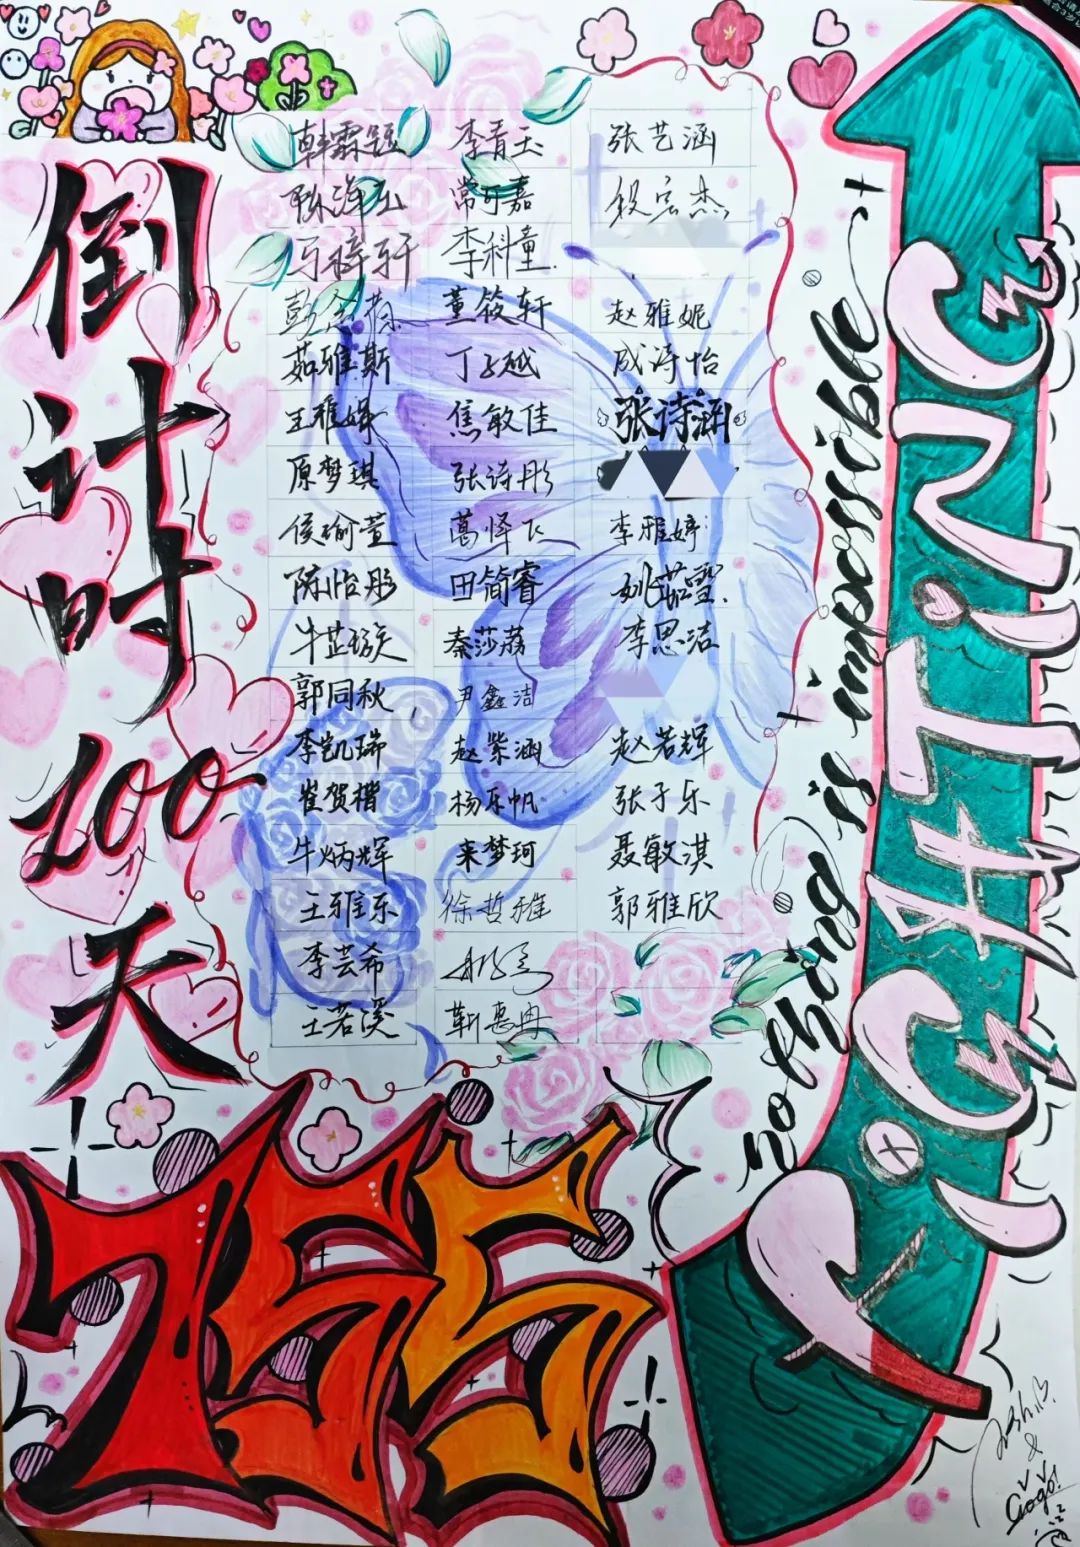 倒计时100天
韩霖题 李青玉 张艺涵
陈泽玉 常可嘉 段宏杰
万梓轩 李科童
董筱轩 赵雅妮
茹雅斯 丁子越 成涛怡
王雅婷 焦敏佳 张诗涵
原梦琪 张诗彤
侯瑜萱 葛怿飞 李雅婷
陈怡彤 田简睿 姚茹雪
牛芷璇 秦莎荔 李思洁
郭同秋 尹鑫洁
李凯瑞 赵紫涵 赵若辉
崔贺楷 杨乐帆 张子乐
牛炳辉 来梦珂 聂敏淇
王雅乐 徐哲雅 郭雅欣
李芸希
王若溪 靳惠冉
nothing is impossible
FiGHTiNG
755
& GoGo!